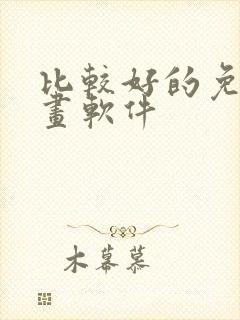 比較好的免
畫軟件
木幕慕